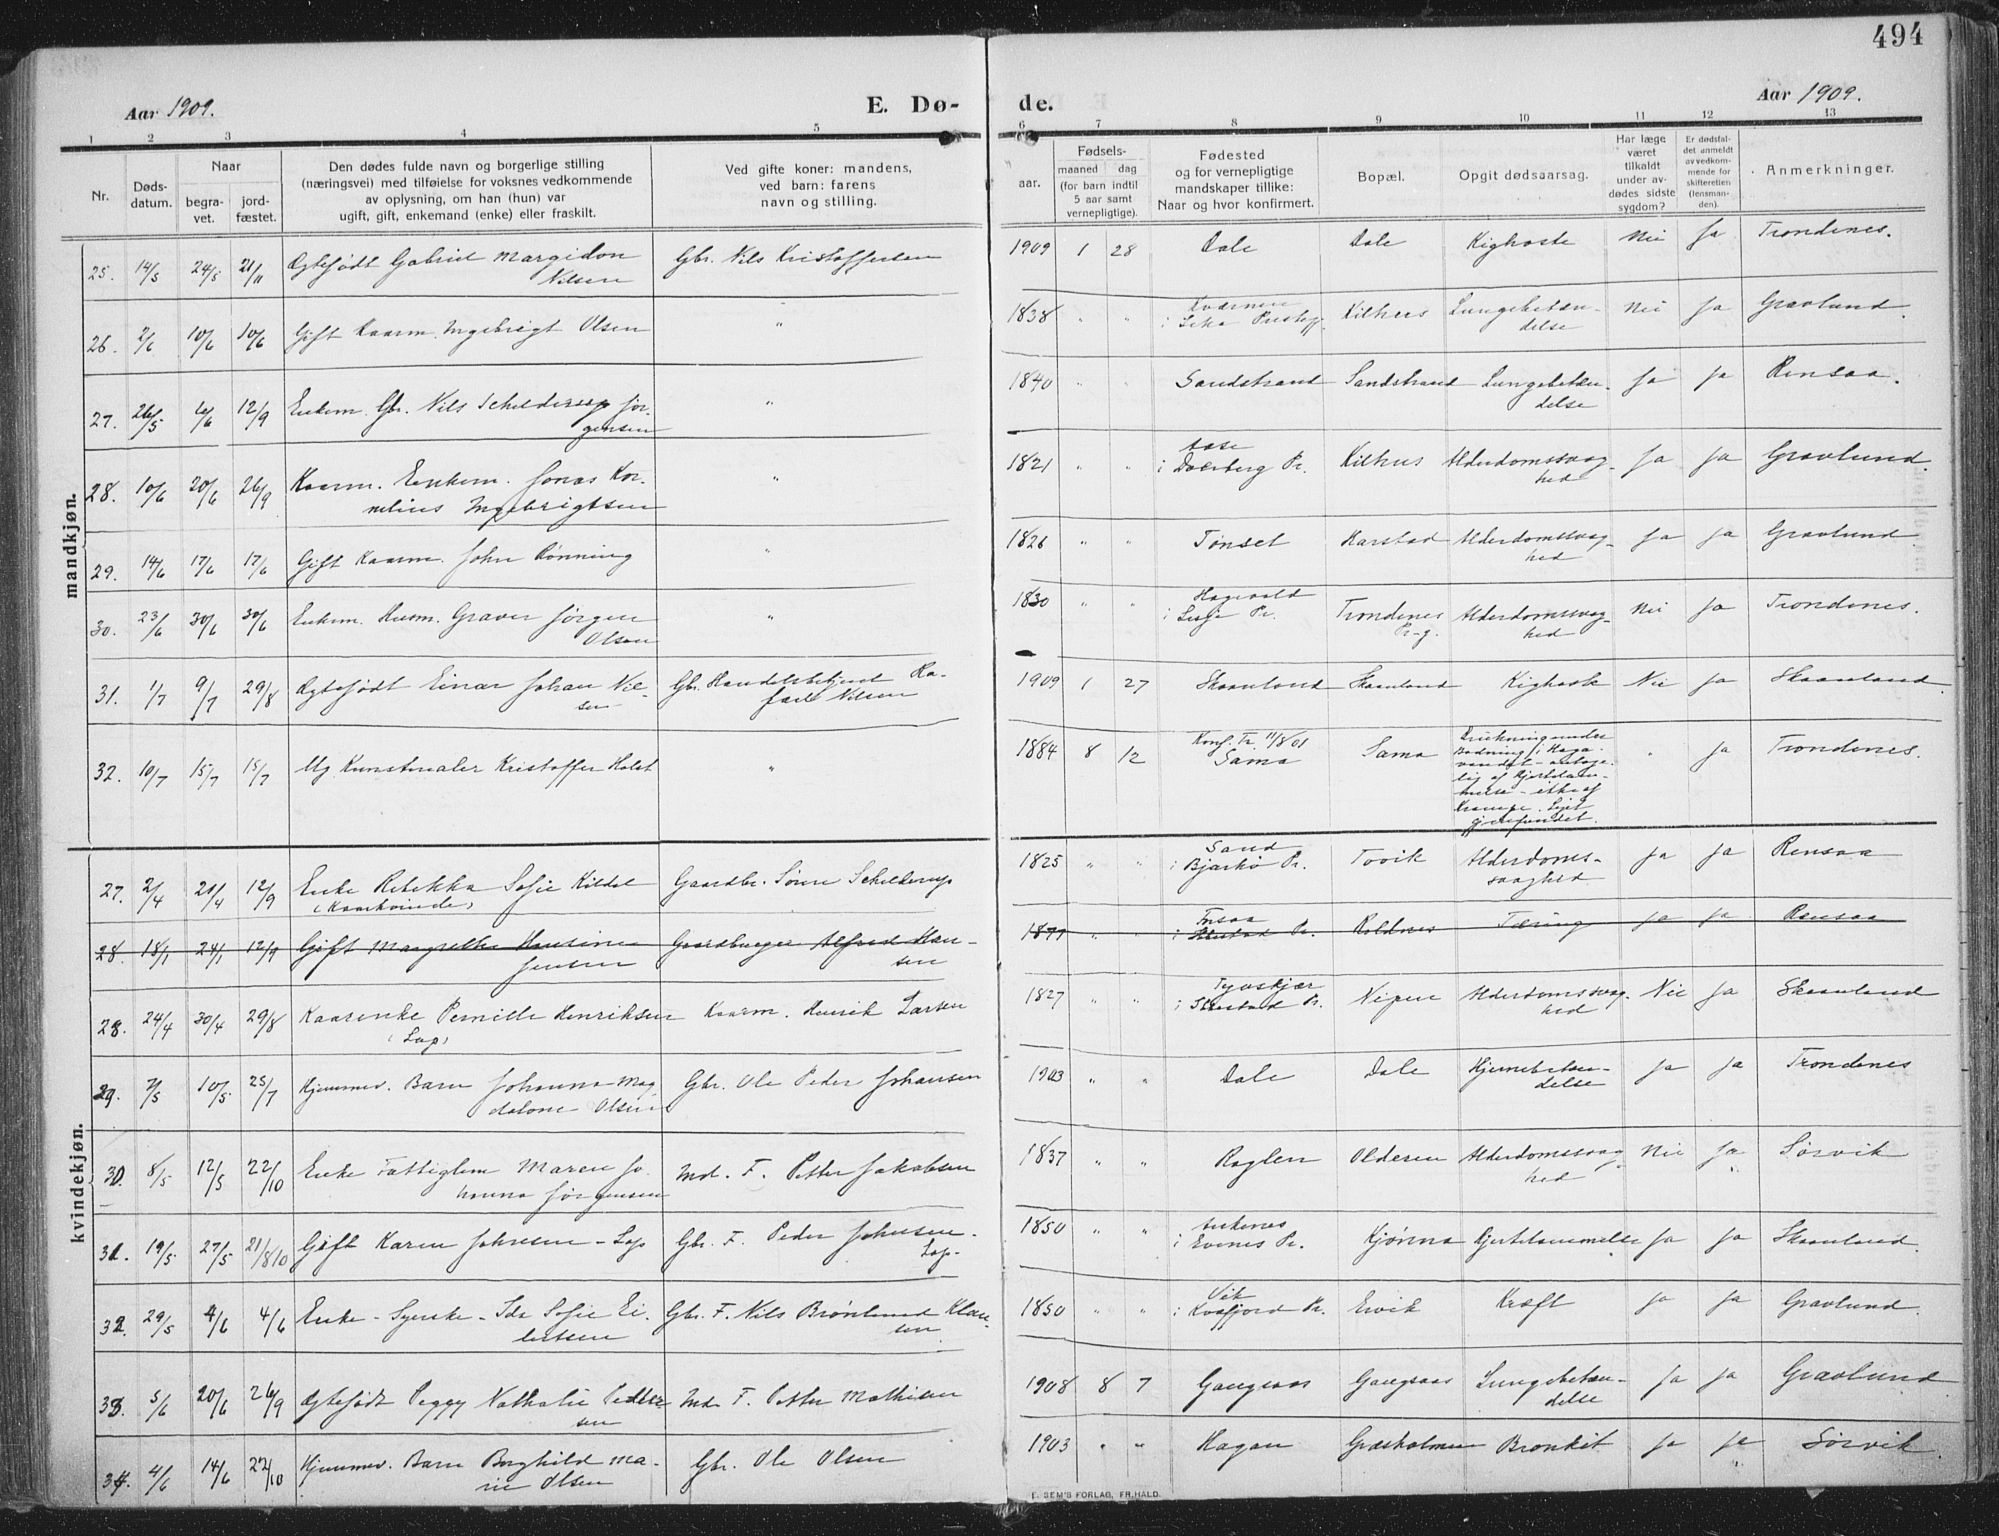 494
Aar 1909.
E. Dø-
de.
Aar 1909.
1 2 3 4 5
6 7 8 9 10 11 12 13
Nr.
Døds-
datum.
Naar
begra-
vet.
jord-
fæstet.
Den dødes fulde navn og borgerlige stilling
(næringsvei) med tilføielse for voksnes vedkommende
av oplysning, om han (hun) var
ugift, gift, enkemand (enke) eller fraskilt.
Ved gifte koner: mandens,
ved barn: farens
navn og stilling.
aar.
Fødsels-
maaned dag
(for barn indtil
5 aar samt
vernepligtige).
Fødested
og for vernepligtige
mandskaper tillike:
Naar og hvor konfirmert.
Bopæl.
Opgit dødsaarsag.
Har læge
været
tilkaldt
under av-
dødes sidste
sygdom?
Er dødsfal-
det anmeldt
av vedkom-
mende for
skifteretten
(lensman-
den).
Anmerkninger.
mandkjøn.
25. 14/5 24/5 21/11 Ægtefødt Gabriel Margidon Gbr. Nils Kristoffersen 1909 1 28 Dale Dale Kighoste Nei Ja Trondenes.
Nilsen
26. 2/6 10/6 10/6 Gift Kaarm. Ingebrigt Olsen " 1838 " " Kværnen Kilhus Lungebetæn- Nei Ja Gravlund
i Leka Prestegj. delse
27. 26/5 6/6 12/9 Enkem. Gbr. Nils Schelderup Jør- " 1840 " " Sandstrand Sandstrand Lungebetæn- Ja Ja Rensaa.
gensen delse
28. 10/6 20/6 26/9 Kaarm. Enkem. Jonas Kor- 1821 " " i Dverberg Pr. Kilhus Alderdomssvag- Ja Ja Gravlund
nelius Ingebrigtsen hed
29. 14/6 17/6 17/6 Gift Kaarm. John Rønning " 1826 " " Tønset Harstad Alderdomssvag- Ja Ja Gravlund
hed
30. 23/6 30/6 30/6 Enkem. Husm. Graver Jørgen " 1830 " " i Lesje Pr. Trondenes Alderdomssvag- Nei Ja Trondenes.
Olsen Pr-g. hed
31. 1/7 9/7 29/8 Ægtefødt Einar Johan Nil- Gbr. Handelsbetjent Ra- 1909 1 27 Skaanland Skaanland Kighoste Nei Ja Skaanland
sen fael Nilsen
32. 10/7 15/7 15/7 Ug Kunstmaler Kristoffer Holst " 1884 8 12 Konf. Tr. 11/8 01 Sama Drukning under " Ja Trondenes.
Sama Badning i Haga-
vandet – antage-
lig af Hjertelam-
melse – ikke af
Krampe. Liget
gjenfundet.
kvindekjøn.
27. 2/4 21/4 12/9 Enke Rebekka Sofie Kildal Gaardbr. Søren Schelderup 1825 " " Sand Tovik Alderdoms- Ja Ja Rensaa
(Kaarkvinde) i Bjarkø Pr. svaghed
28. 18/1 24/1 12/9 Gift Margrethe Hansine Gaardbruger Alfred Han- 1877 " " Roldnes Tæring Ja Ja Rensaa
Jensen sen
28. 24/4 30/4 29/8 Kaarenke Pernille Henriksen Kaarm. Henrik Larsen 1827 " " Tjovskjær Nipen Alderdomssvag- Nei Ja Skaanland
(Lap) hed
29. 7/5 10/5 25/7 Hjemmev. Barn Johanna Mag Gbr. Ole Peder Johansen 1903 " " Dale Dale Hjernebetæn- Ja Ja Trondenes
dalone Olsen delse
30. 8/5 12/5 22/10 Enke Fattiglem Maren Jo- Md. F. Petter Jakobsen 1837 " " Roglen Olderen Alderdomssvag Nei Ja Sørvik
hanna Jørgensen hed
31. 19/5 27/5 21/8 10 Gift Karen Johnsen – Lap Gbr. F. Peder Johnsen – 1850 " " Ankenes Kjønna Hjertelammelse Ja Ja Skaanland
Lap. i Evenes Pr.
32. 29/5 4/6 4/6 Enke – Syerske – Ida Sofie Ei- Gbr. F. Nils Brønlund Klau- 1850 " " Vik Ervik Kræft Ja Ja Gravlund
lertsen sen i Kvæfjord Pr.
33. 5/6 20/6 26/9 Ægtefødt Peggy Nathalie Peder- Md. F. Petter Mathisen 1908 8 7 Gangsaas Gangsaas Lungebetæn- Ja Ja Gravlund
sen delse
34. 4/6 14/6 22/10 Hjemmev. Barn Borghild Ma- Gbr. Ole Olsen 1903 " " Hagan Græsholmen Bronkit Ja Ja Sørvik
rie Olsen
E. SEM'S FORLAG, FR.HALD.